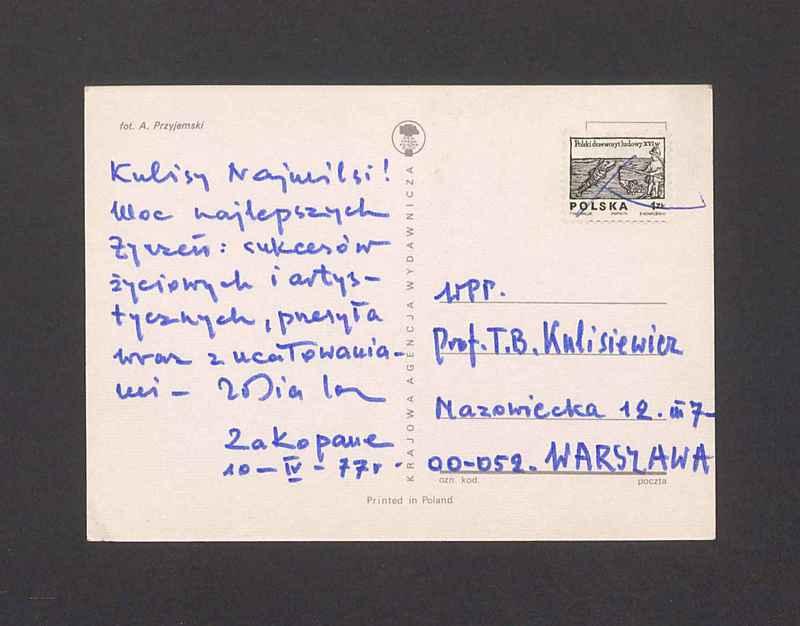 fot. A. Przyjemski
Kulisy Najmilsi!
Moc najlepszych
życzeń: sukcesów
życiowych i artys-
tycznych, przesyła
wraz z ucałowania-
mi - Zosia
Zakopane
10-IV-77r.
KRAJOWA AGENCJA WYDAWNICZA
Polski drzeworyt ludowy XVI w
POLSKA 1ZŁ
WPP.
Prof. T.B. Kulisiewicz
Mazowiecka 12. m 7
00-052. WARSZAWA
ozn. kod. poczta
Printed in Poland